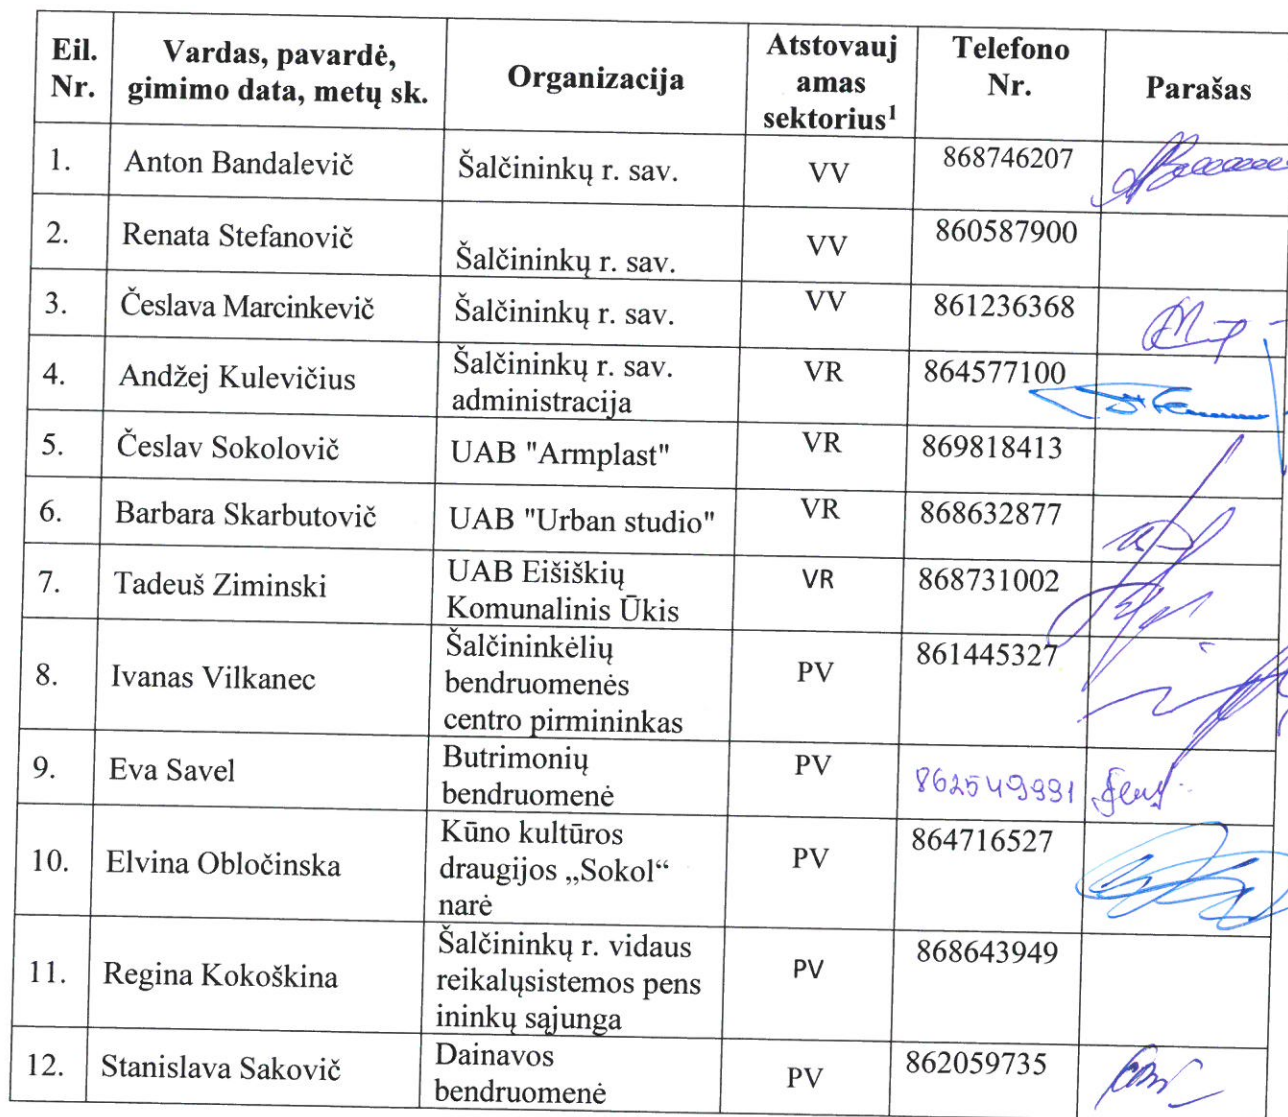 Eil. Nr. Vardas, pavardė, gimimo data, metų sk. Organizacija Atstovauj amas sektorius¹ Telefono Nr. Parašas
1. Anton Bandalevič Šalčininkų r. sav. VV 868746207
2. Renata Stefanovič Šalčininkų r. sav. VV 860587900
3. Česlava Marcinkevič Šalčininkų r. sav. VV 861236368
4. Andžej Kulevičius Šalčininkų r. sav. administracija VR 864577100
5. Česlav Sokolovič UAB "Armplast" VR 869818413
6. Barbara Skarbutovič UAB "Urban studio" VR 868632877
7. Tadeuš Ziminski UAB Eišiškių Komunalinis Ūkis VR 868731002
8. Ivanas Vilkanec Šalčininkėlių bendruomenės centro pirmininkas PV 861445327
9. Eva Savel Butrimonių bendruomenė PV 862549991
10. Elvina Obločinska Kūno kultūros draugijos „Sokol“ narė PV 864716527
11. Regina Kokoškina Šalčininkų r. vidaus reikalųsistemos pens ininkų sąjunga PV 868643949
12. Stanislava Sakovič Dainavos bendruomenė PV 862059735